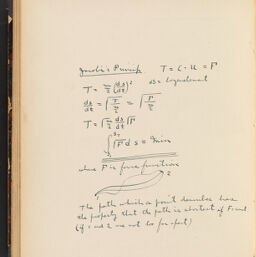 Jacobi's Princip. T = C - U = F
T = m/2 (ds/dt)² ds = bogenelement
ds/dt = √(T / m/2) = √(F / m/2)
T = √(m/2) ds/dt √F
∫ √F ds = Min
where F is force function
2
The path which a point describes has
the property that the path is shortest of
(if 1 and 2 are not too far apart)